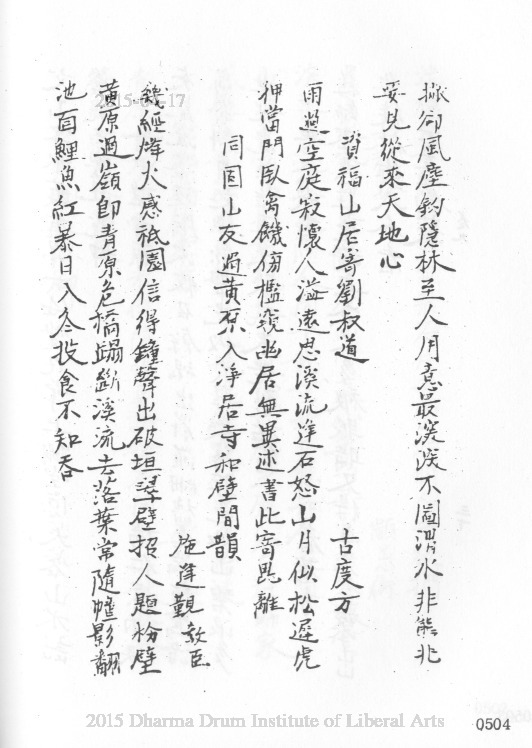 振卻風塵釣隱林至人用意最深淺不圖渭水非熊兆
要見從來天地心
資福山居寄劉叔道
古度方
雨過空庭寂懷人溢遠思溪流逢石怒山月似松遲虎
狎當門臥禽饑傍檻窺幽居無異述書此寄毘離
同目山友過黃原入淨居寺和壁間韻
施逢覲教臣
幾經烽火感祗園信得鐘聲出破垣翠壁招人題粉壁
黃原過嶺即青原危橋蹋斷溪流去落葉常隨幢影翻
池面鯉魚紅暴日入冬投食不知吞
2015-04-17
2015 Dharma Drum Institute of Liberal Arts
0504